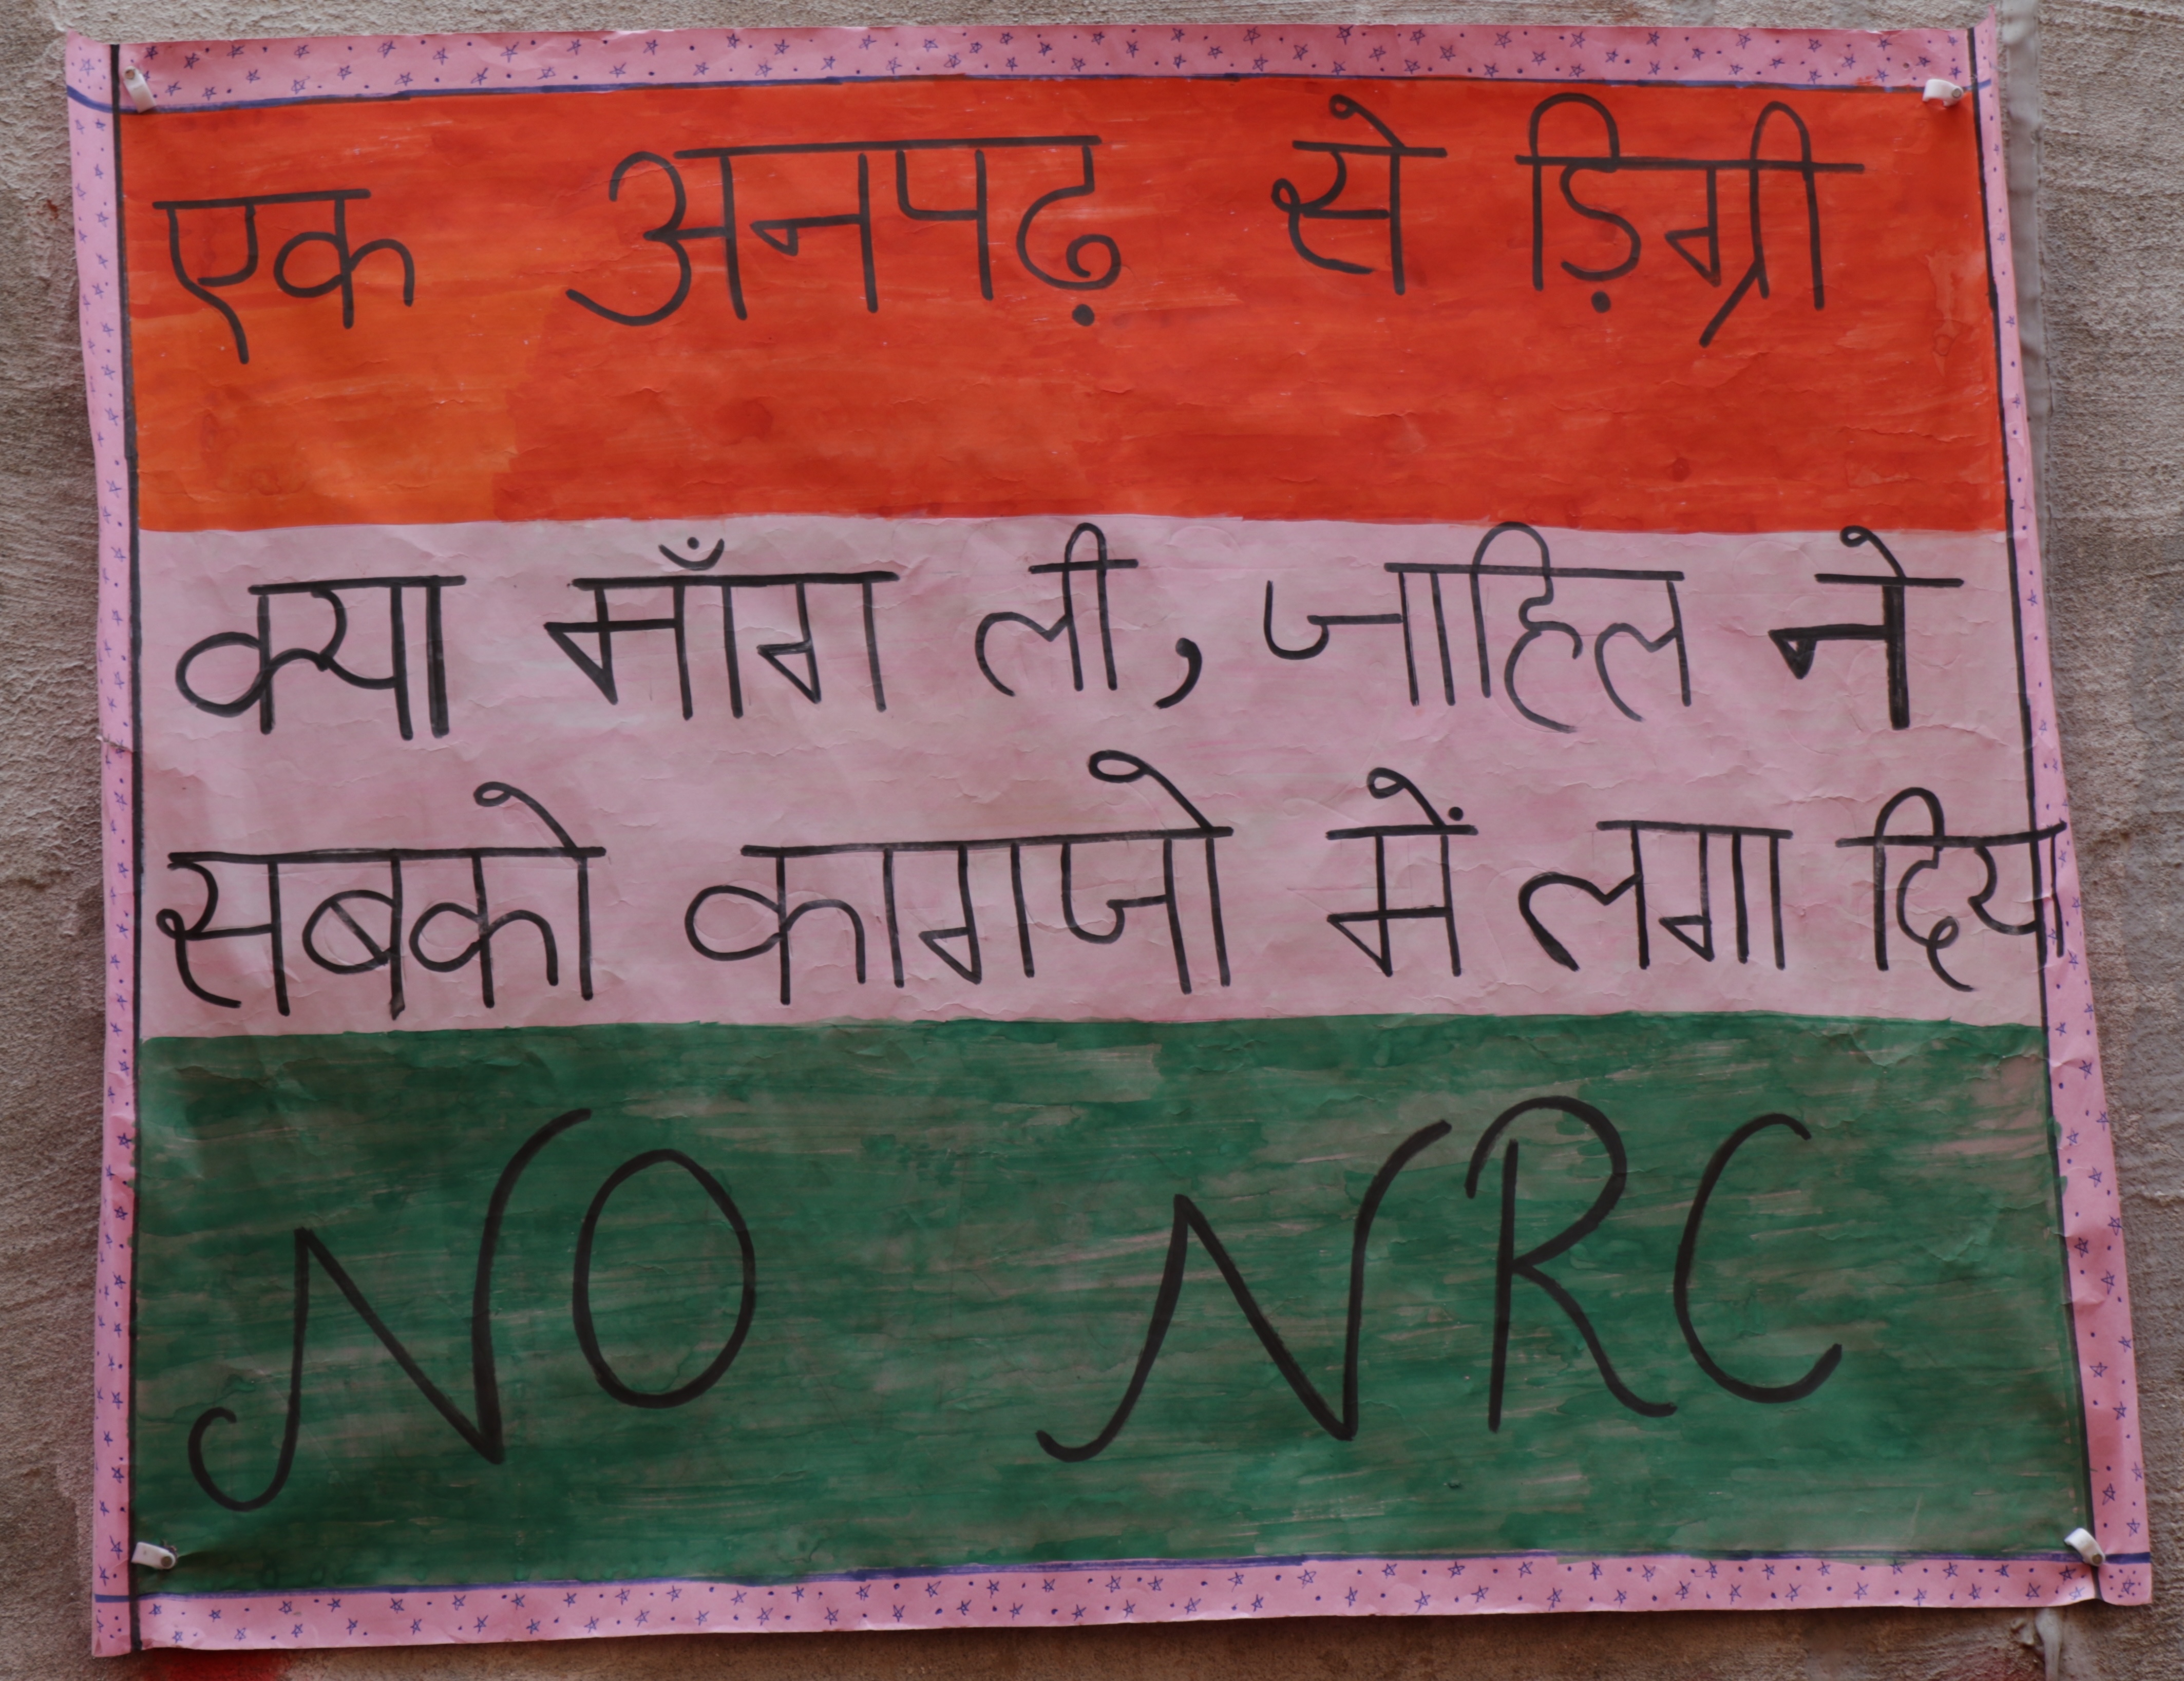 एक अनपढ़ से ड़िग्री
क्या माँग ली, जाहिल ने
सबको कागजो में लगा दिया
NO NRC